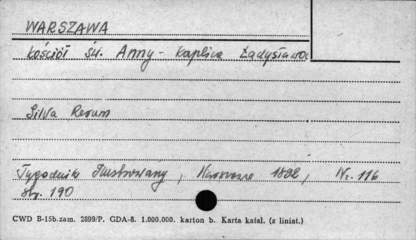 WARSZAWA
Kościół św. Anny - Kaplica Ładysława
Silva Rerum
Tygodnik Ilustrowany, Warszawa 1882, Nr. 116
str. 190
CWD B-15b.zam. 2899/P. GDA-8. 1.000.000. karton b. Karta katal. (z liniat.)